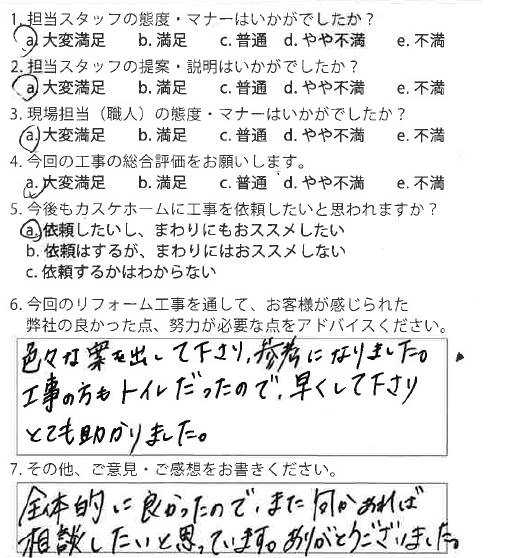 1. 担当スタッフの態度・マナーはいかがでしたか？
a. 大変満足 b. 満足 c. 普通 d. やや不満 e. 不満
2. 担当スタッフの提案・説明はいかがでしたか？
a. 大変満足 b. 満足 c. 普通 d. やや不満 e. 不満
3. 現場担当（職人）の態度・マナーはいかがでしたか？
a. 大変満足 b. 満足 c. 普通 d. やや不満 e. 不満
4. 今回の工事の総合評価をお願いします。
a. 大変満足 b. 満足 c. 普通 d. やや不満 e. 不満
5. 今後もカスケホームに工事を依頼したいと思われますか？
a. 依頼したいし、まわりにもおススメしたい
b. 依頼はするが、まわりにはおススメしない
c. 依頼するかはわからない
6. 今回のリフォーム工事を通して、お客様が感じられた
弊社の良かった点、努力が必要な点をアドバイスください。
色々な案を出して下さり、参考になりました。
工事の方もトイレだったので、早くして下さり
とても助かりました。
7. その他、ご意見・ご感想をお書きください。
全体的に良かったので、また何かあれば
相談したいと思っています。ありがとうございました。